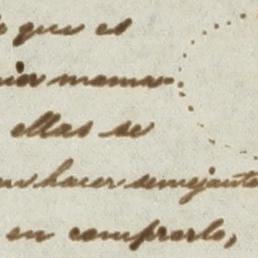 que es
mama-
ellas se
hacer semejante
en comprarlo,